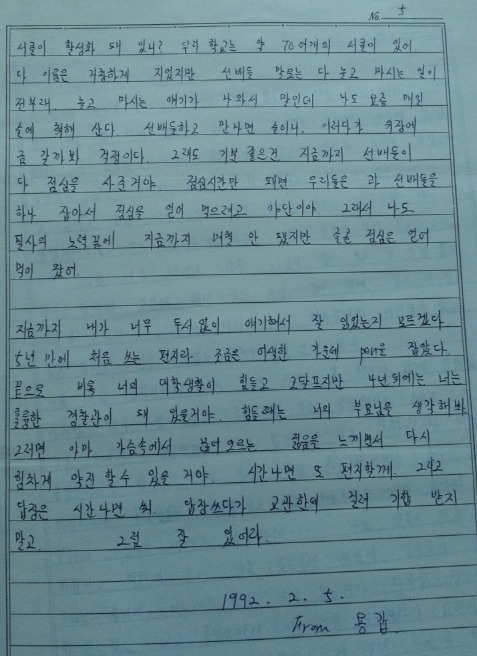 No. 5
서클이 활성화 돼 있니? 우리 학교는 약 70여개의 서클이 있어.
다 이름은 거창하게 지었지만 선배들 말로는 다 놀고 마시는 일이
전부래. 놀고 마시는 얘기가 나와서 말인데 나도 요즘 매일
술에 취해 산다. 선배들하고 만나면 술이니. 이러다가 위장에
금 갈까봐 걱정이다. 그래도 기분 좋은건 지금까지 선배들이
다 점심을 사준거야. 점심시간만 돼면 우리들은 과 선배들을
하나 잡아서 점심을 얻어 먹으려고 야단이야. 그래서 나도
필사의 노력끝에 지금까지 며칠 안 됐지만 줄곧 점심은 얻어
먹어 왔어.
지금까지 내가 너무 두서없이 얘기해서 잘 읽었는지 모르겠다.
5년 만에 처음 쓰는 편지라 조금은 어색한 가운데 pen을 잡았다.
끝으로 비록 너의 대학생활이 힘들고 고달프지만 4년 뒤에는 너는
훌륭한 경찰관이 돼 있을거야. 힘들때는 너의 부모님을 생각해 봐.
그러면 아마 가슴속에서 끓어 오르는 젊음을 느끼면서 다시
힘차게 약진 할 수 있을 거야. 시간나면 또 편지할께. 그리고
답장은 시간나면 써. 답장쓰다가 교관한테 걸려 기합 받지
말고. 그럼 잘 있어라.
1992. 2. 5.
From 용갑.